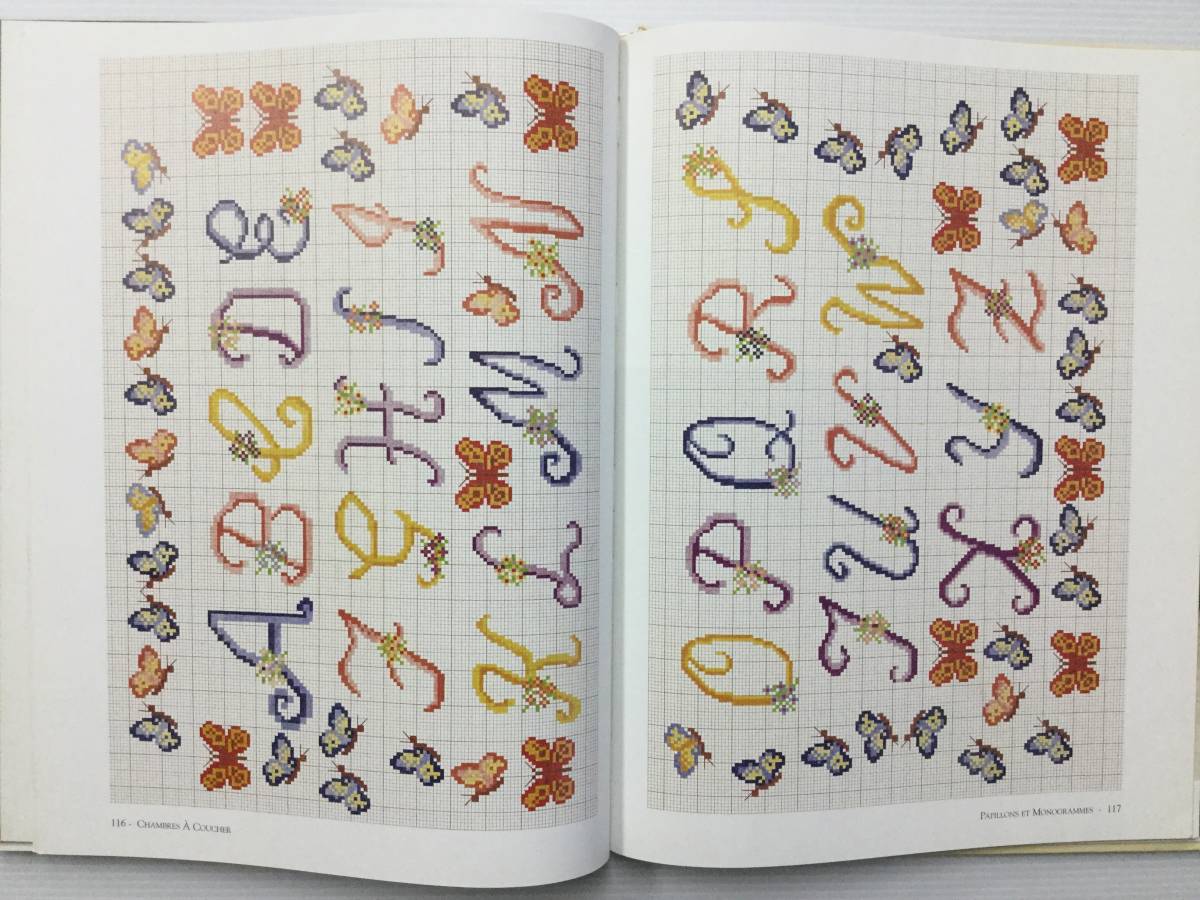 A B C D E
F G H I J
K L M N
116 - CHAMBRES À COUCHER
O P Q R S
T U V W
X Y Z
PAPILLONS ET MONOGRAMMES - 117